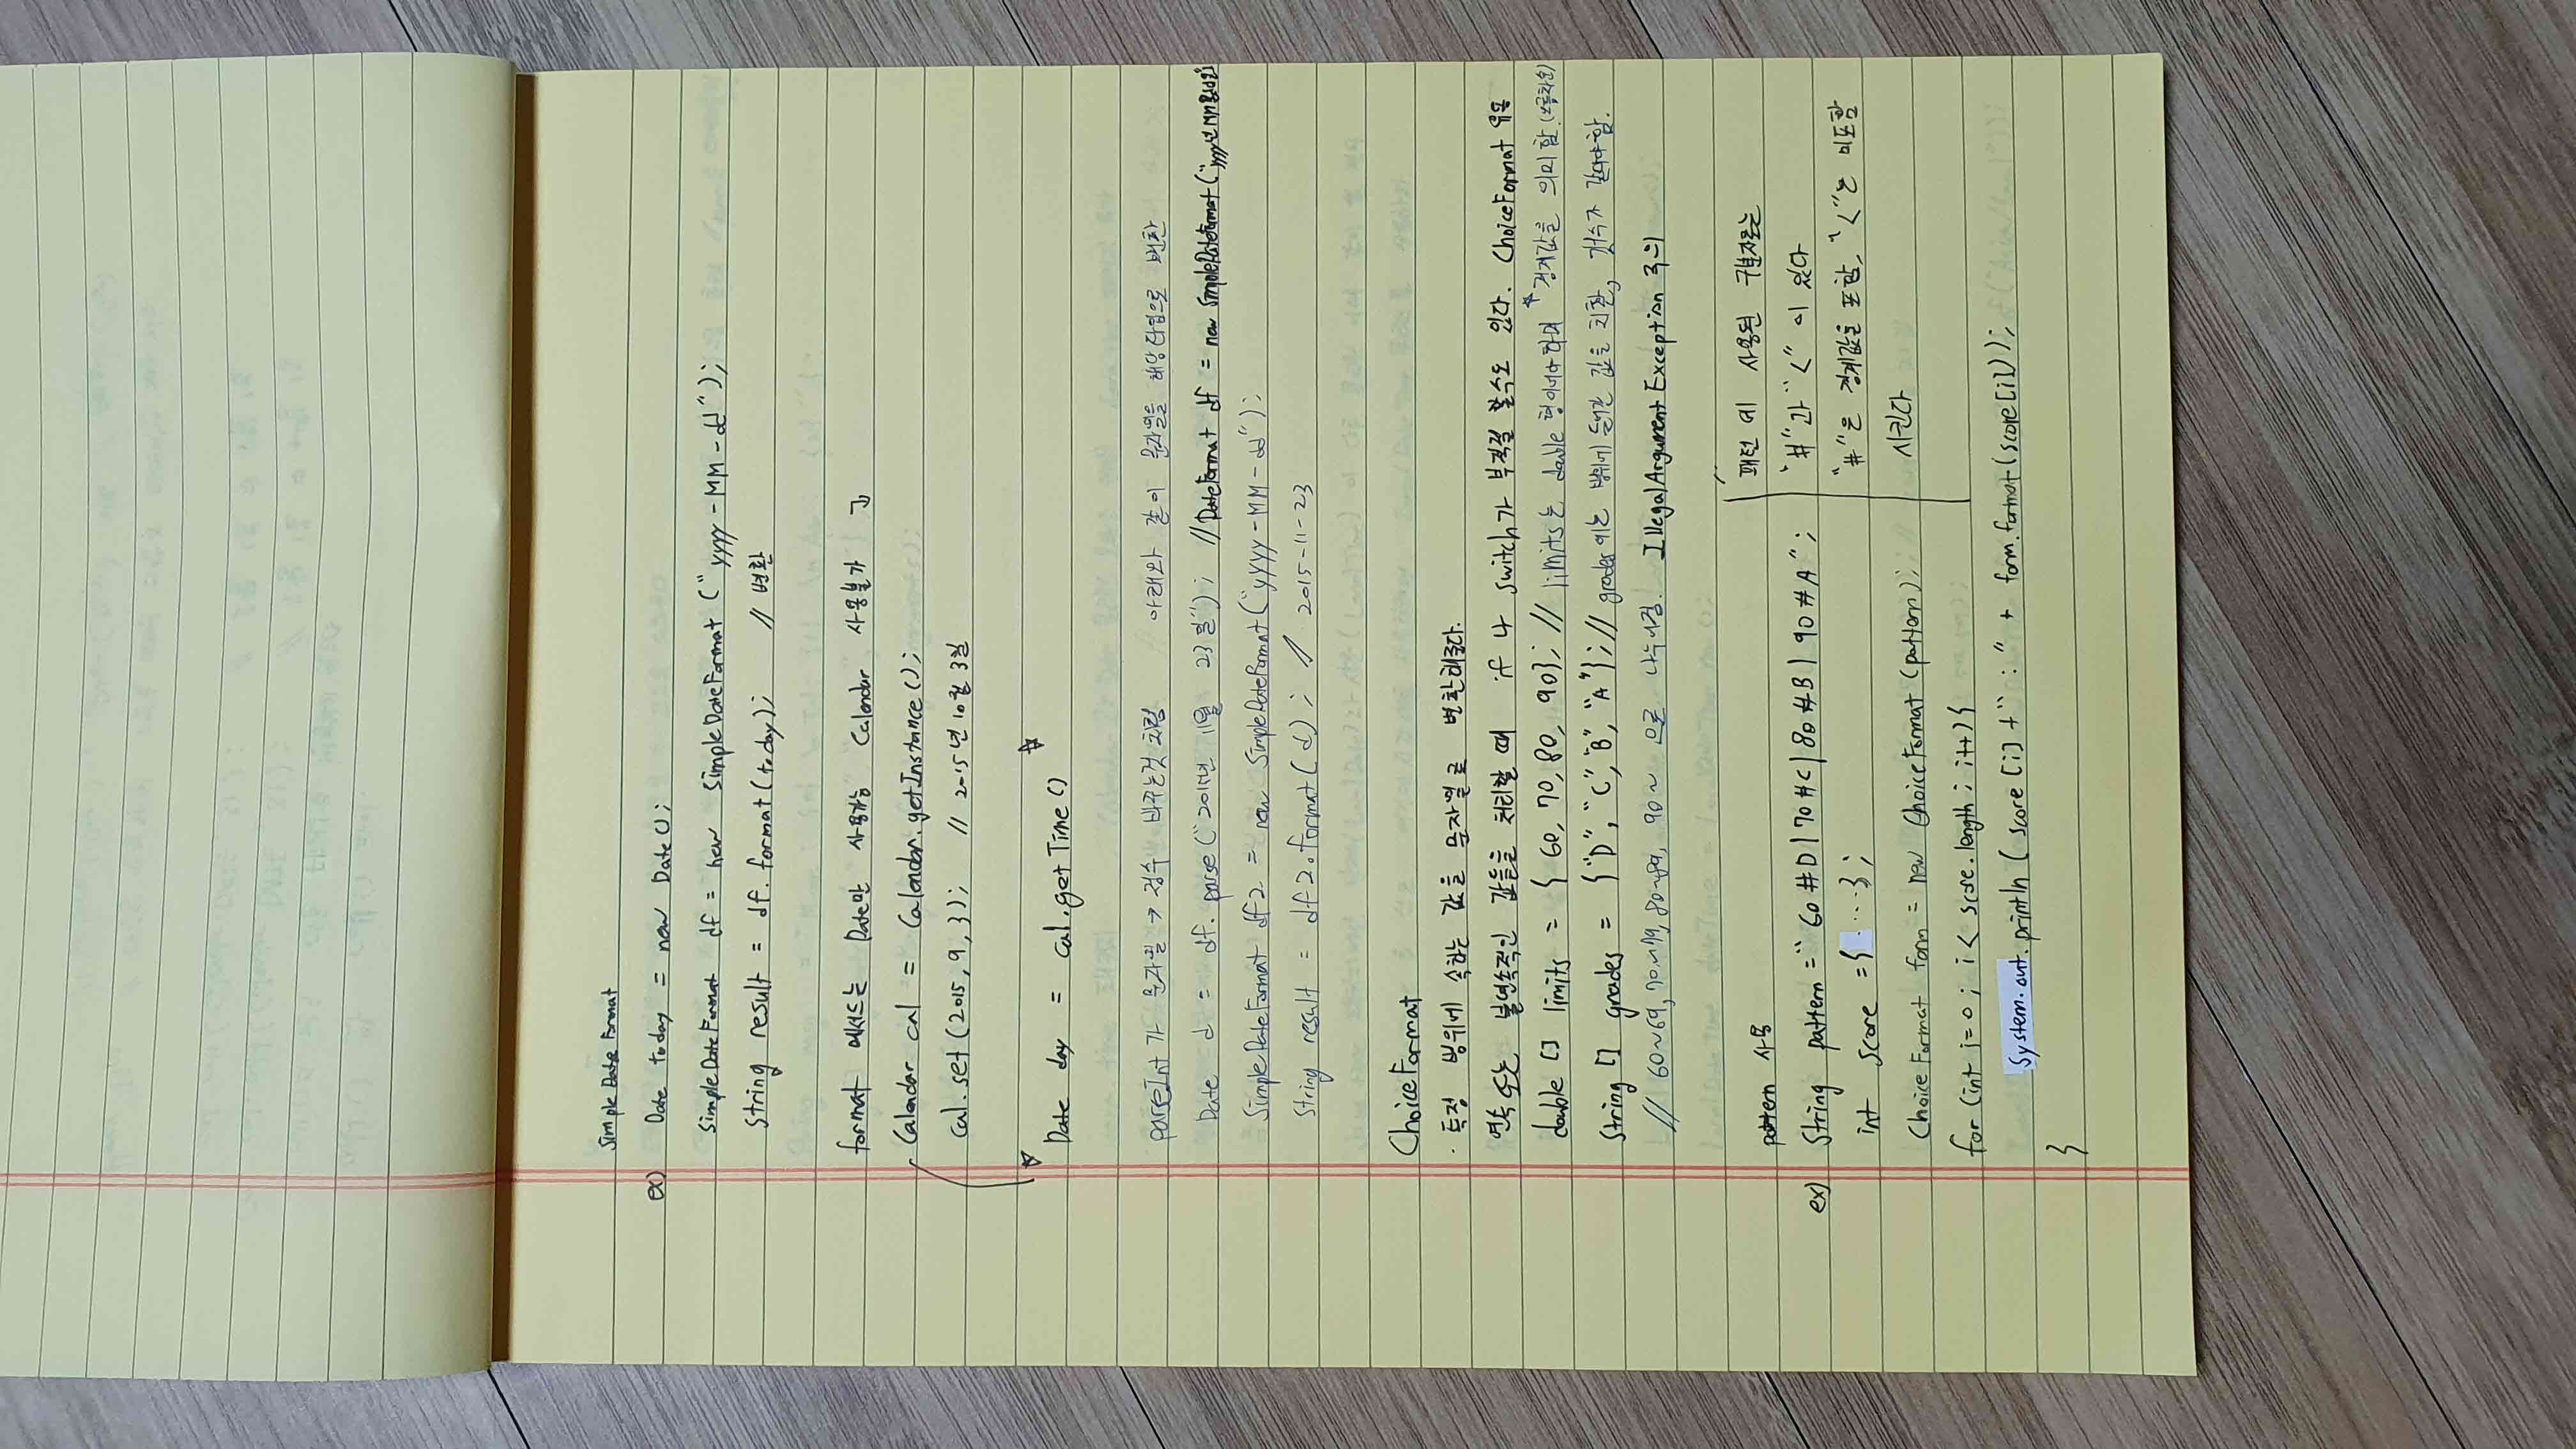 Simple Date Format
ex) Date today = new Date();
SimpleDateFormat df = new SimpleDateFormat ("yyyy-MM-dd");
String result = df.format(today); // 변환
format 메서드는 Date만 사용가능 Calendar 사용불가
Calendar cal = Calendar.getInstance();
cal.set(2015, 9, 3); // 2015년 10월 3일
Date day = cal.getTime() ☆
parseInt가 문자열 → 정수 바꾸는것 처럼 아래와 같이 문자열을 해당타입으로 변환
Date d = df.parse("2015년 11월 23일"); // DateFormat df = new SimpleDateFormat("yyyy년 MM월 dd일")
SimpleDateFormat df2 = new SimpleDateFormat("yyyy-MM-dd");
String result = df2.format(d); // 2015-11-23
ChoiceFormat
· 특정 범위에 속하는 값을 문자열로 변환해준다.
연속 또는 불연속적인 값들을 처리할 때 if 나 switch가 부적절 할수도 있다. ChoiceFormat 유용
double [] limits = { 60, 70, 80, 90}; // limits는 double 형이어야 하며 ☆경계값을 의미함.(오름차순)
String [] grades = {"D", "C", "B", "A"}; // grades에는 범위에 들어간 값을 치환, 갯수가 같아야함.
// 60~69, 70~79, 80~89, 90~ 으로 나누어짐. IllegalArgument Exception 주의
pattern 사용
ex) String pattern = "60#D|70#C|80#B|90#A";
int score = { ....};
ChoiceFormat form = new ChoiceFormat (pattern);
for (int i=0; i < score.length; i++){
System.out.println ( score [i] + " : " + form.format(score[i]));
}
패턴 에 사용된 구분자로는
"#"과 "<" 이 있다
"#"은 경계값을 포함, "<"는 미포함
시킨다